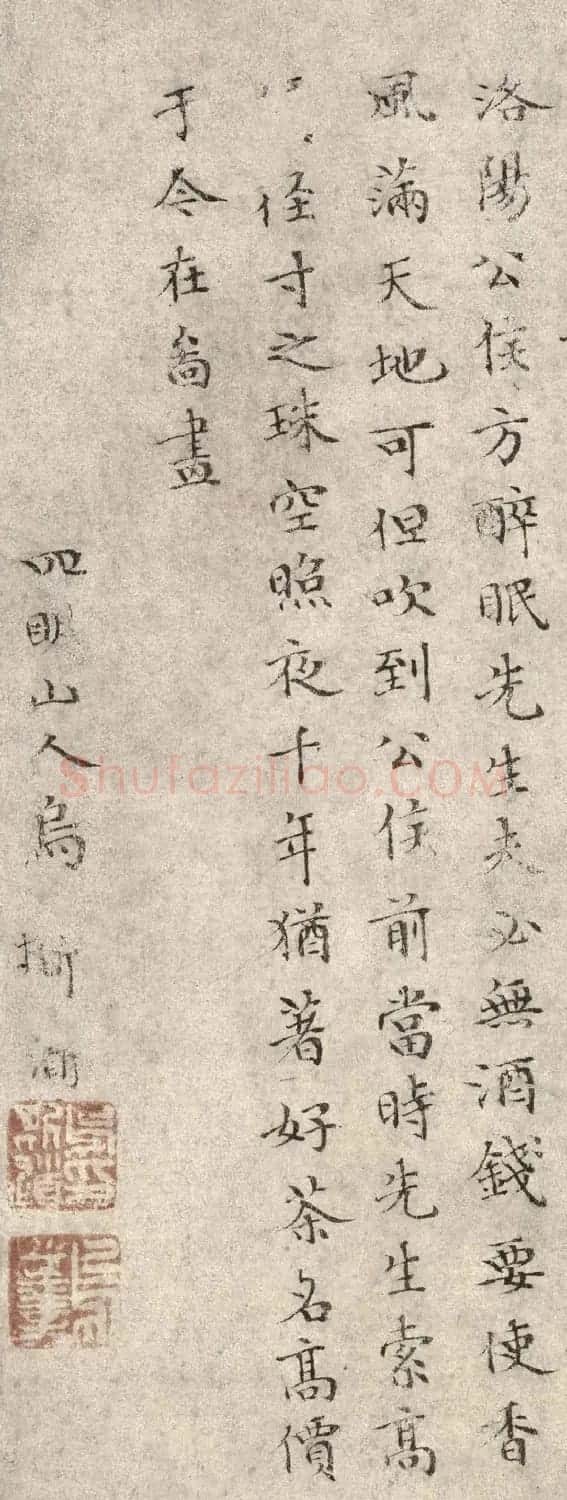 洛陽公侯方醉眠先生夫必無酒錢要使香
風滿天地可但吹到公侯前當時先生索高
径寸之珠空照夜十年猶著好茶名高價
于今在畵
四明山人烏
Shufaziliao.COM